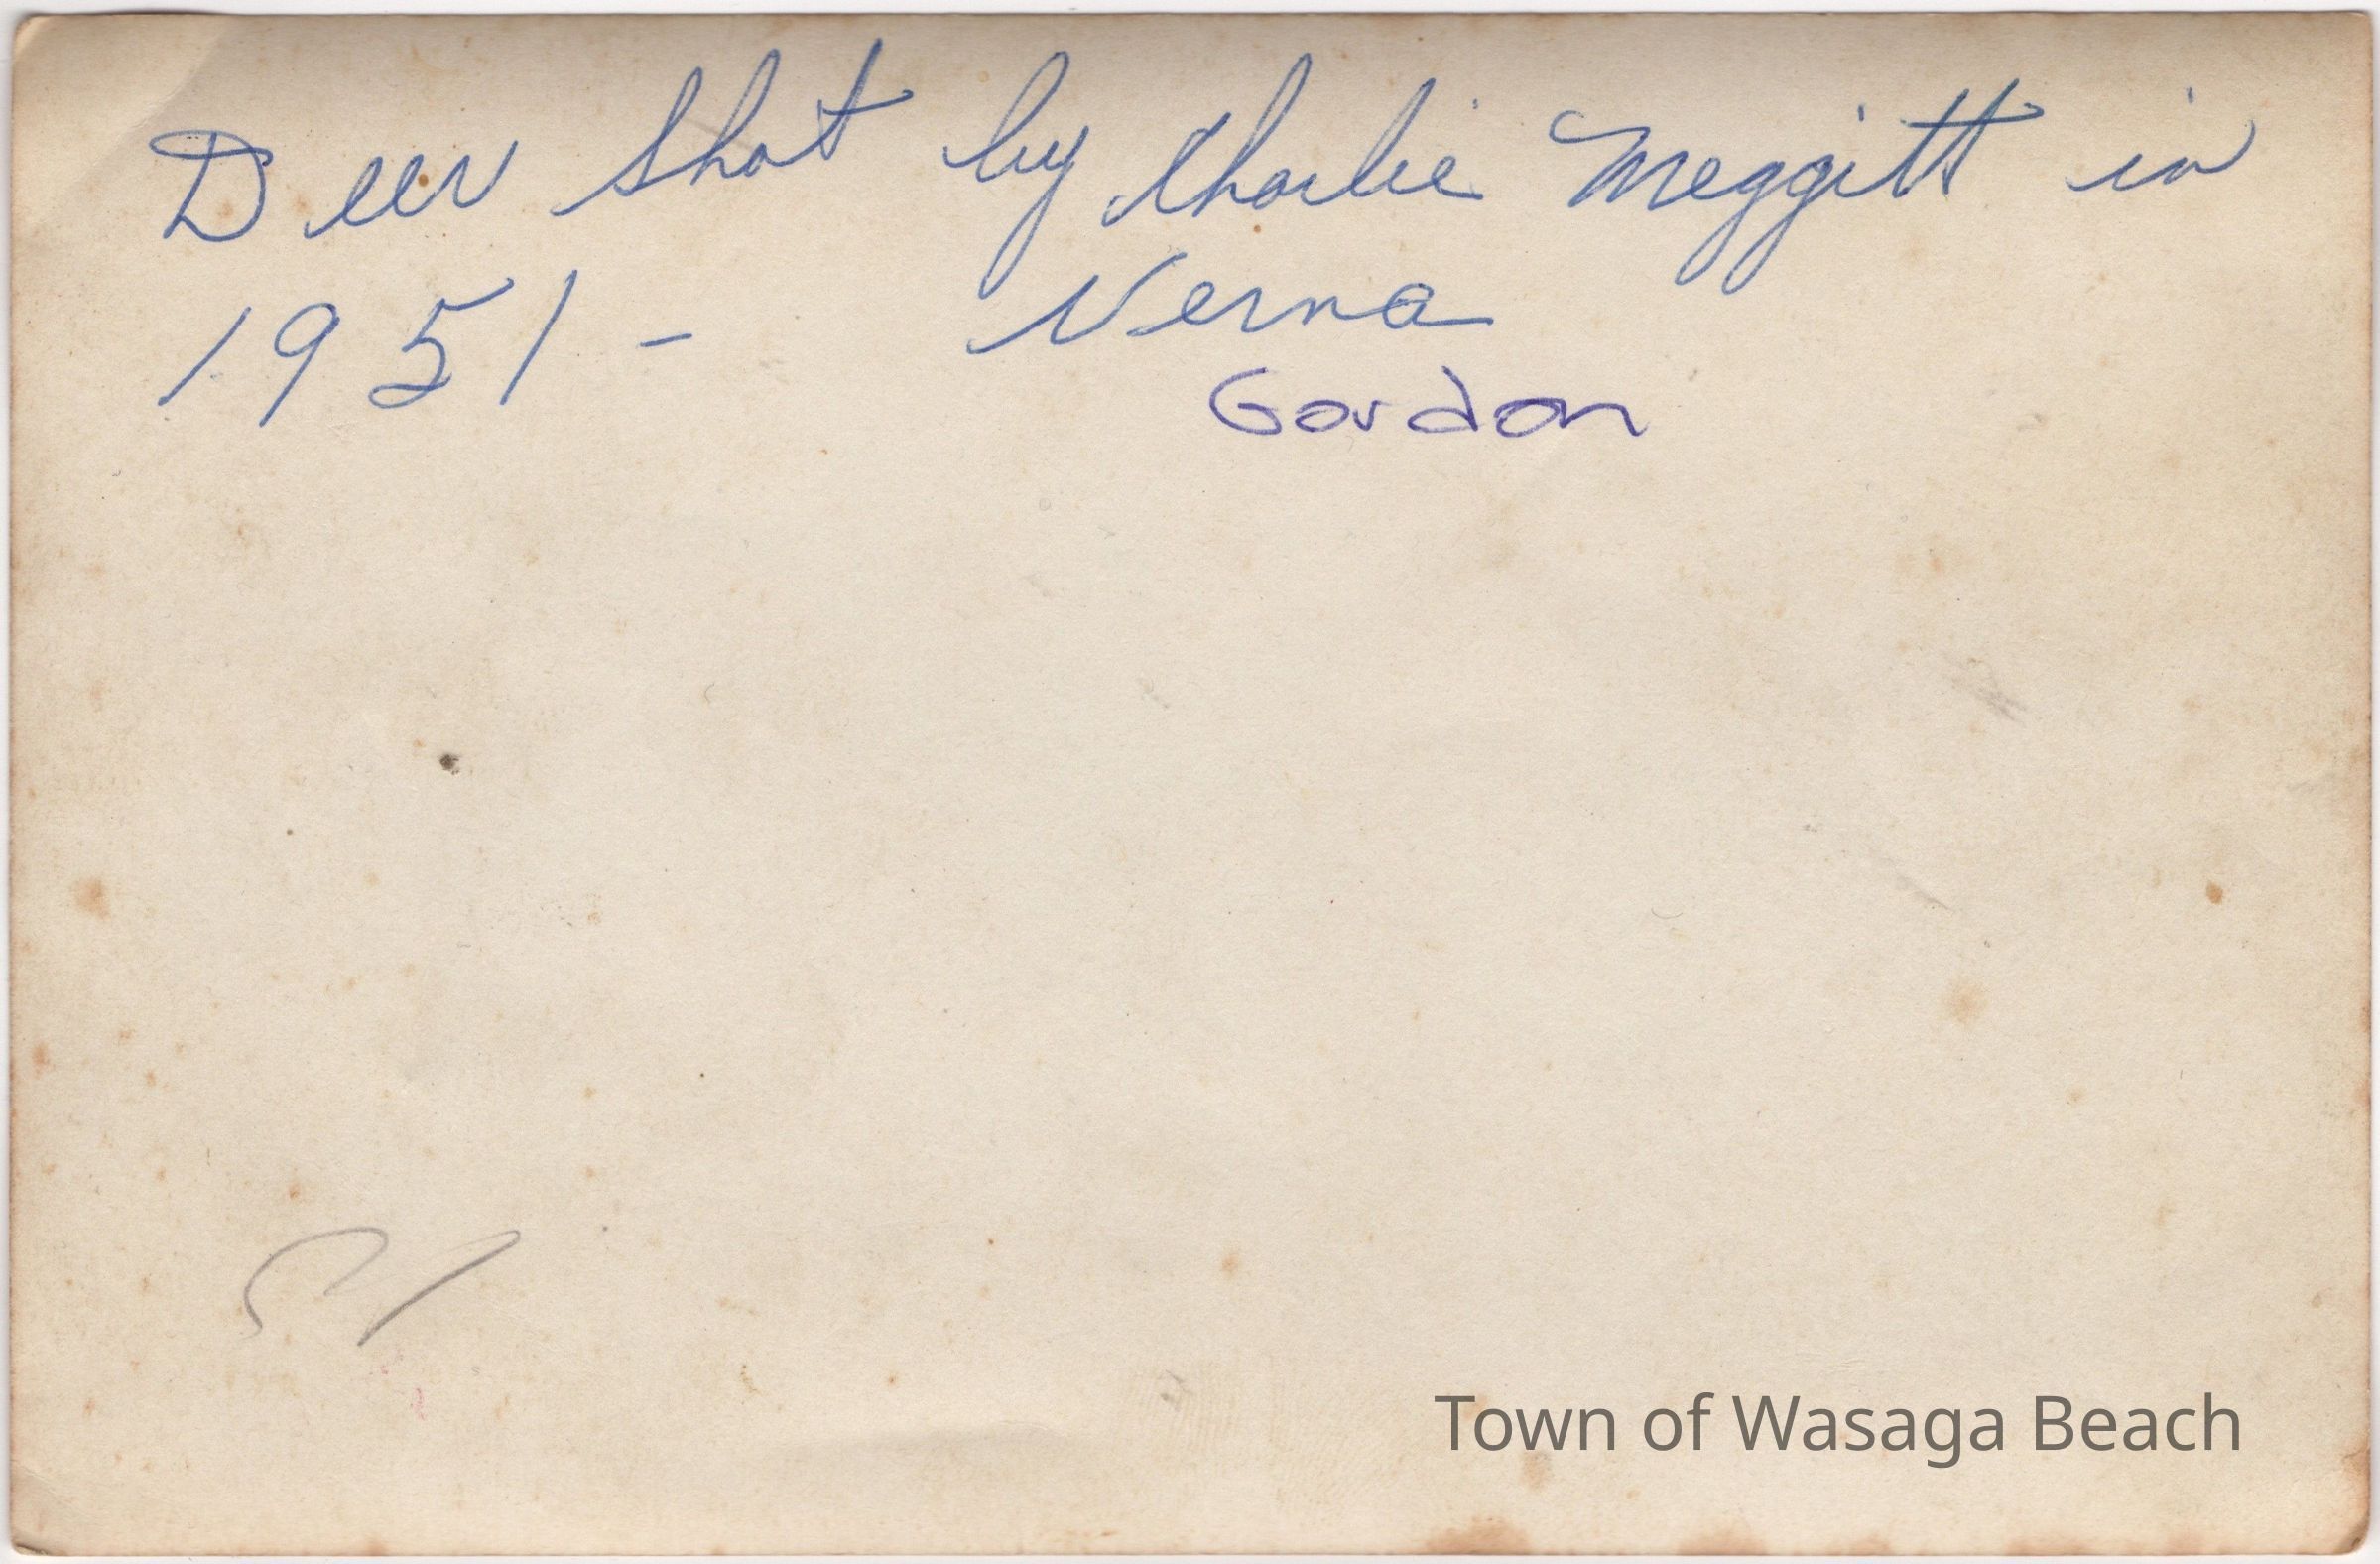 Deer shot by Charlie Meggitt in
1951 - Verna
Gordon
Town of Wasaga Beach